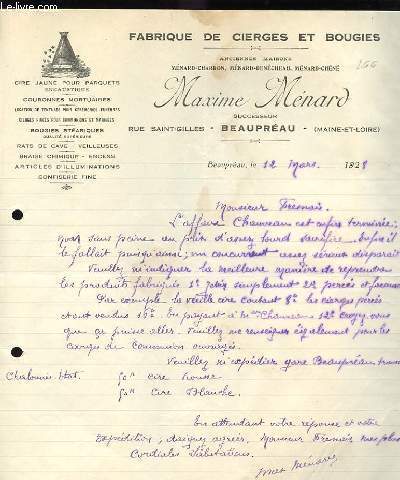 FABRIQUE DE CIERGES ET BOUGIES
ANCIENNES MAISONS
MÉNARD-CHARBON, MÉNARD-BÉNÉCHEAU, MÉNARD-CHÉNÉ
Maxime Ménard
SUCCESSEUR
RUE SAINT-GILLES - BEAUPRÉAU - (MAINE-ET-LOIRE)
CIRE JAUNE POUR PARQUETS
ENCAUSTIQUE
COURONNES MORTUAIRES
LOCATION DE TENTURES POUR CÉRÉMONIES FUNÈBRES
CIERGES POUR COMMUNIONS ET MARIAGES
BOUGIES STÉARIQUES
QUALITÉ SUPÉRIEURE
RATS DE CAVE - VEILLEUSES
BRAISE CHIMIQUE - ENCENS
ARTICLES D'ILLUMINATIONS
CONFISERIE FINE
Beaupréau, le 12 Mars 1928
Monsieur Fresnais.
L'affaire Chauveau est enfin terminée;
non sans peine au prix d'assez lourd sacrifice. Enfin il
le fallait puisqu'aussi, un concurrent assez sérieux disparait
Veuillez m'indiquer la meilleure manière de reprendre
les produits fabriqués 1° simplement 2° percés et
Par exemple la vieille cire coutant 8f les cierges percés
étant vendus 15f. En payant à Mme Chauveau 12f croyez vous
que ça puisse aller. Veuillez me renseigner également pour les
cierges de Communion ouvragés.
Veuillez m'expédier gare Beaupréau
50k cire rousse
50k Cire Blanche.
En attendant votre réponse et votre
Expédition, daignez agréer, Monsieur Fresnais mes plus
Cordiales Salutations.
Max Ménard